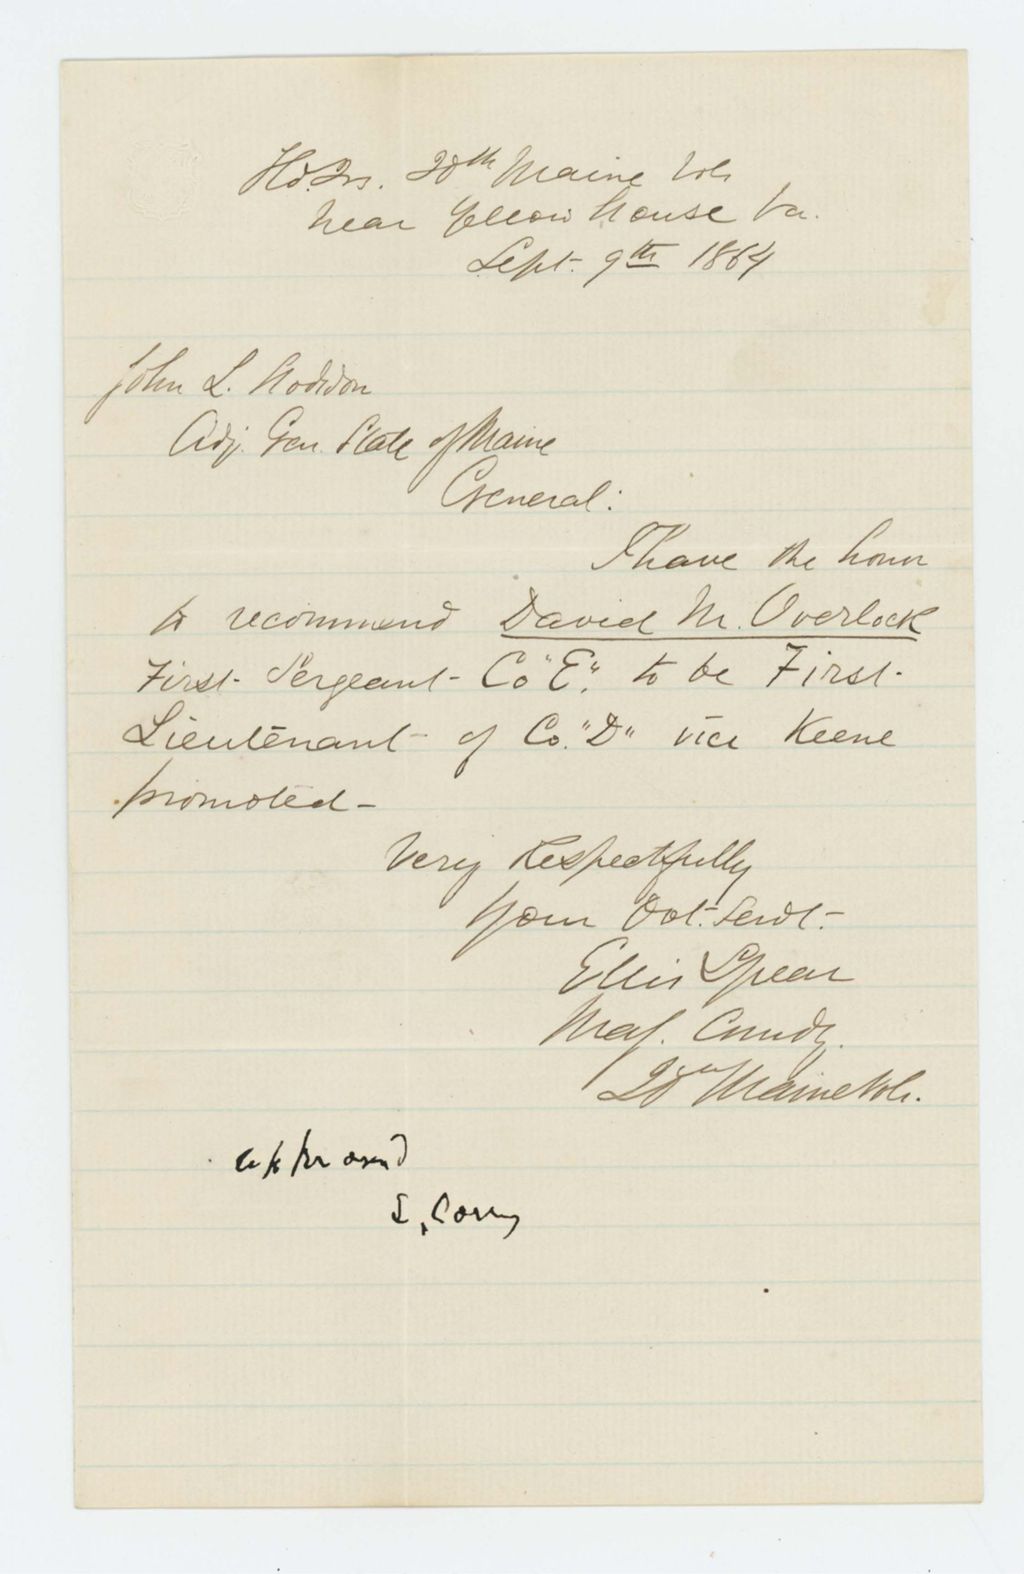 Hd. Qrs. 20th Maine Vols
Near Yellow House Va.
Sept. 9th 1864
John L. Hodsdon
Adj. Gen. State of Maine
General:
I have the honor
to recommend David M. Overlock
First Sergeant Co "E". to be First
Lieutenant of Co. "D" vice Keene
promoted -
Very Respectfully
Your Obt. Servt.
Ellis Spear
Maj. Comdg.
20th Maine Vols.
approved
S. Cony